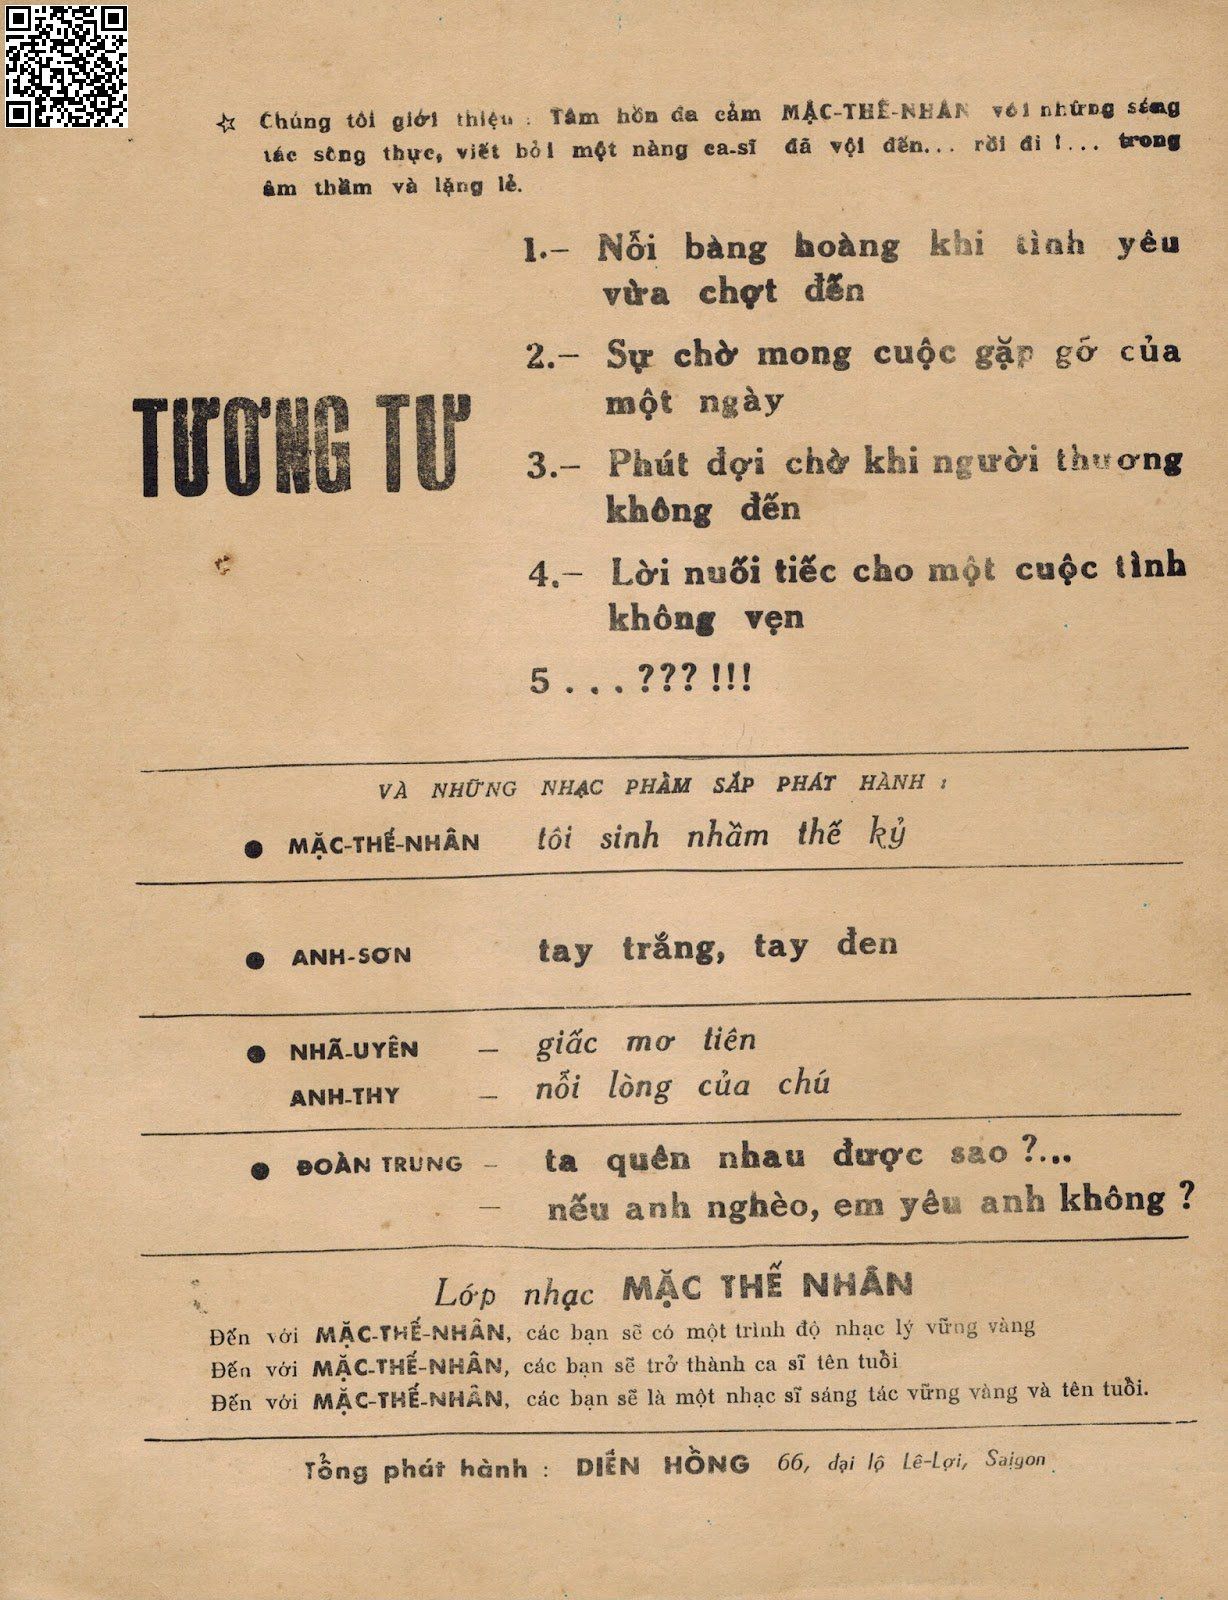 ☆ Chúng tôi giới thiệu : Tâm hồn đa cảm MẶC-THẾ-NHÂN với những sáng
tác sống thực, viết bởi một nàng ca-sĩ đã vội đến... rồi đi !... trong
âm thầm và lặng lẻ.
TƯƠNG TƯ
1.– Nỗi bàng hoàng khi tình yêu
vừa chợt đến
2.– Sự chờ mong cuộc gặp gỡ của
một ngày
3.– Phút đợi chờ khi người thương
không đến
4.– Lời nuối tiếc cho một cuộc tình
không vẹn
5 . . . ??? !!!
VÀ NHỮNG NHẠC PHẨM SẮP PHÁT HÀNH :
● MẶC-THẾ-NHÂN tôi sinh nhầm thế kỷ
● ANH-SƠN tay trắng, tay đen
● NHÃ-UYÊN – giấc mơ tiên
ANH-THY – nỗi lòng của chú
● ĐOÀN TRUNG – ta quên nhau được sao ?...
– nếu anh nghèo, em yêu anh không ?
Lớp nhạc MẶC THẾ NHÂN
Đến với MẶC-THẾ-NHÂN, các bạn sẽ có một trình độ nhạc lý vững vàng
Đến với MẶC-THẾ-NHÂN, các bạn sẽ trở thành ca sĩ tên tuổi
Đến với MẶC-THẾ-NHÂN, các bạn sẽ là một nhạc sĩ sáng tác vững vàng và tên tuổi.
Tổng phát hành : DIÊN HỒNG 66, đại lộ Lê-Lợi, Saigon